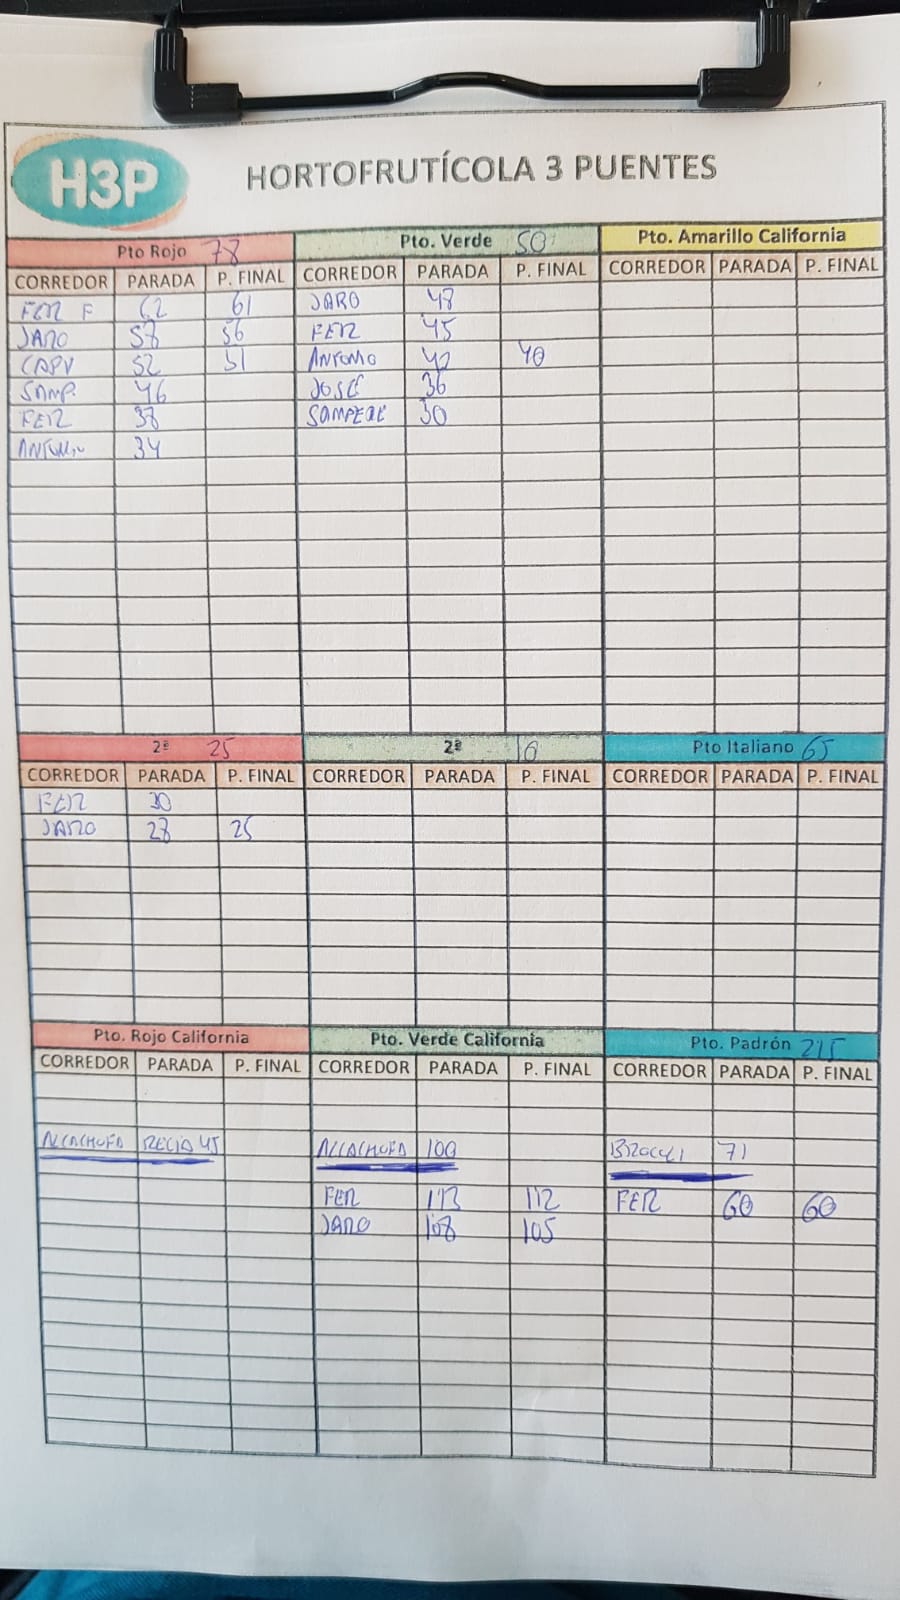 H3P
HORTOFRUTÍCOLA 3 PUENTES
Pto Rojo 78
CORREDOR PARADA P. FINAL
FER F 62 61
JARO 58 56
CAPV 52 51
SAMP. 46
FER 38
ANTONIO 34
Pto. Verde 50
CORREDOR PARADA P. FINAL
JARO 48
FER 45
ANTONIO 42 40
JOSÉ 36
SAMPERE 30
Pto. Amarillo California
CORREDOR PARADA P. FINAL
2ª 25
CORREDOR PARADA P. FINAL
FER 30
JARO 28 25
2ª 16
CORREDOR PARADA P. FINAL
Pto Italiano 65
CORREDOR PARADA P. FINAL
Pto. Rojo California
CORREDOR PARADA P. FINAL
ALCACHOFA RECIO 45
Pto. Verde California
CORREDOR PARADA P. FINAL
ALCACHOFA 100
FER 113 112
JARO 108 105
Pto. Padrón 215
CORREDOR PARADA P. FINAL
BROCOLI 71
FER 60 60